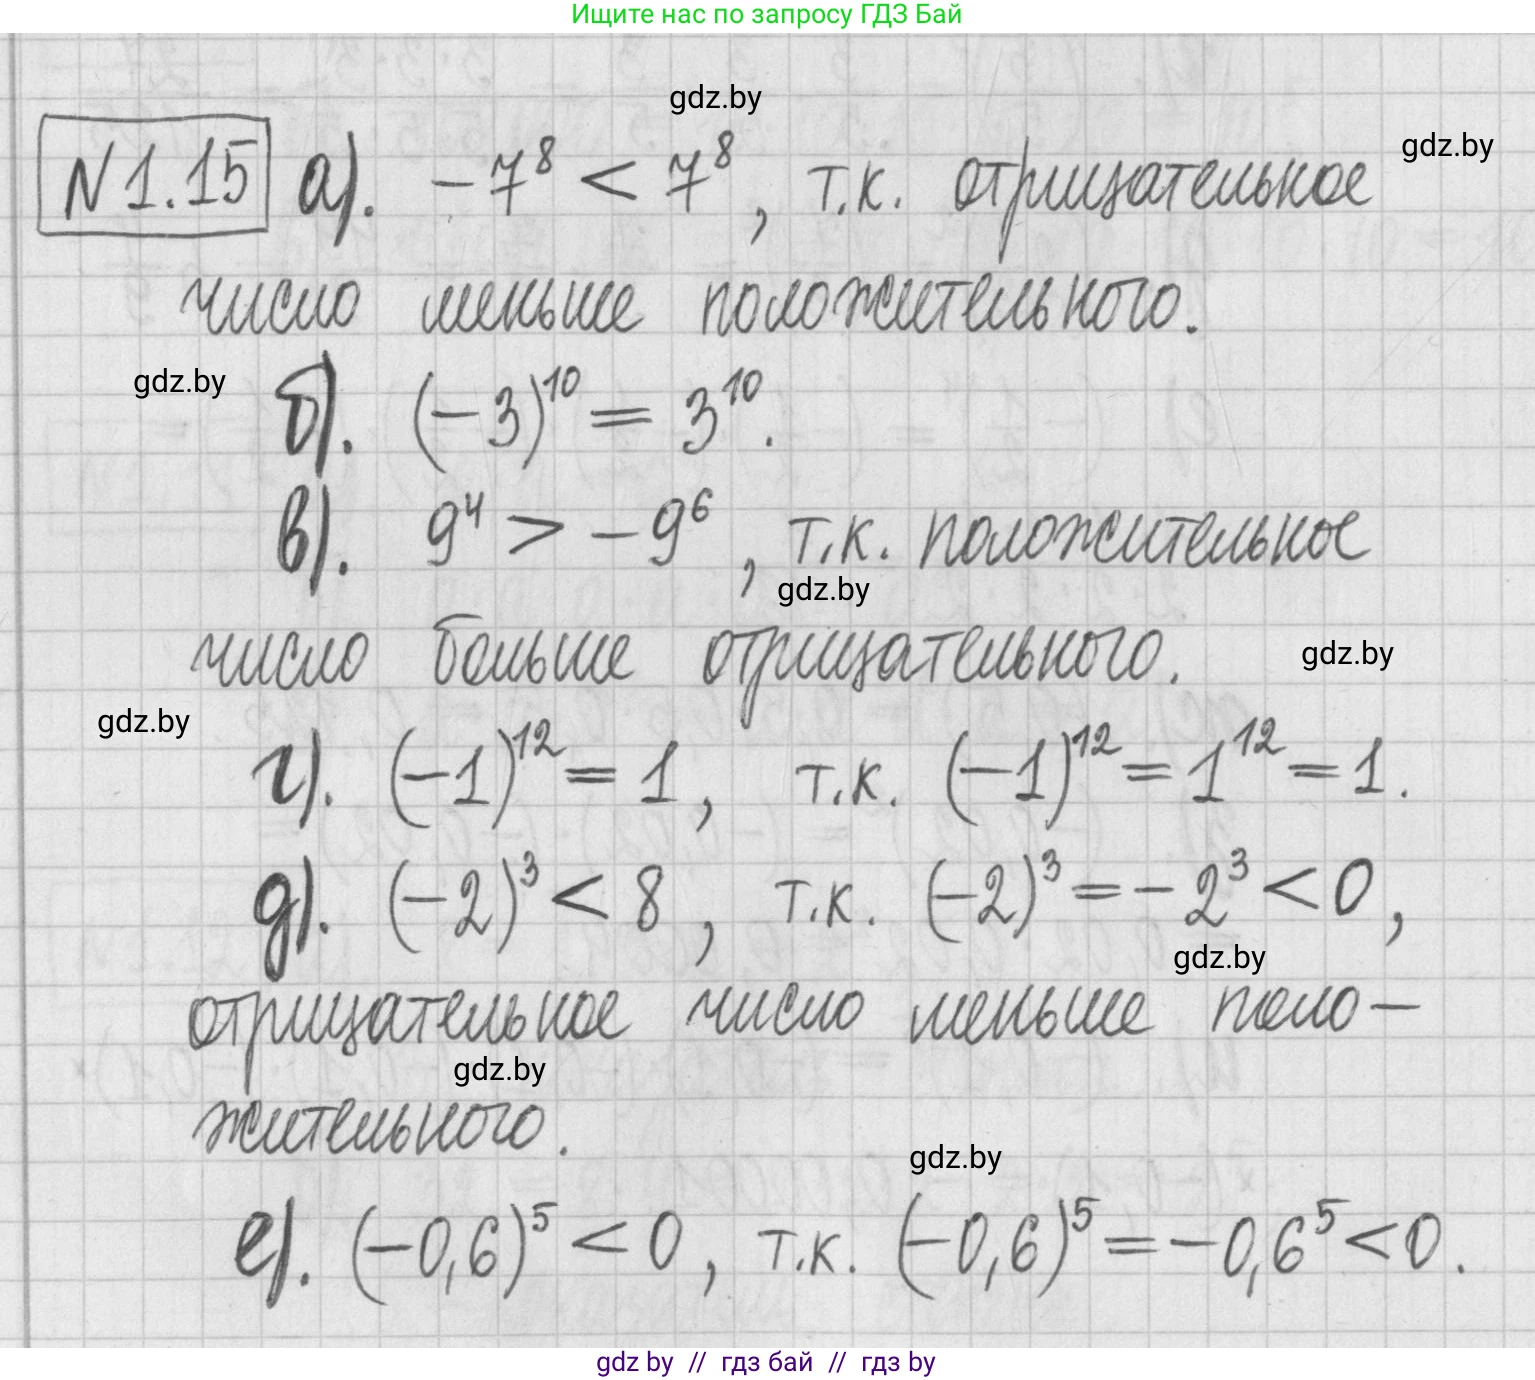 Ищите нас по запросу ГДЗ Бай
gdz.by
gdz.by
N 1.15 а). -7⁸ < 7⁸, т.к. отрицательное
число меньше положительного.
gdz.by
б). (-3)¹⁰ = 3¹⁰.
в). 9⁴ > -9⁶, т.к. положительное
gdz.by
число больше отрицательного.
gdz.by
gdz.by
г). (-1)¹² = 1, т.к. (-1)¹² = 1¹² = 1.
д). (-2)³ < 8, т.к. (-2)³ = -2³ < 0,
gdz.by
отрицательное число меньше поло-
gdz.by
жительного.
gdz.by
е). (-0,6)⁵ < 0, т.к. (-0,6)⁵ = -0,6⁵ < 0.
gdz by // гдз бай // гдз by